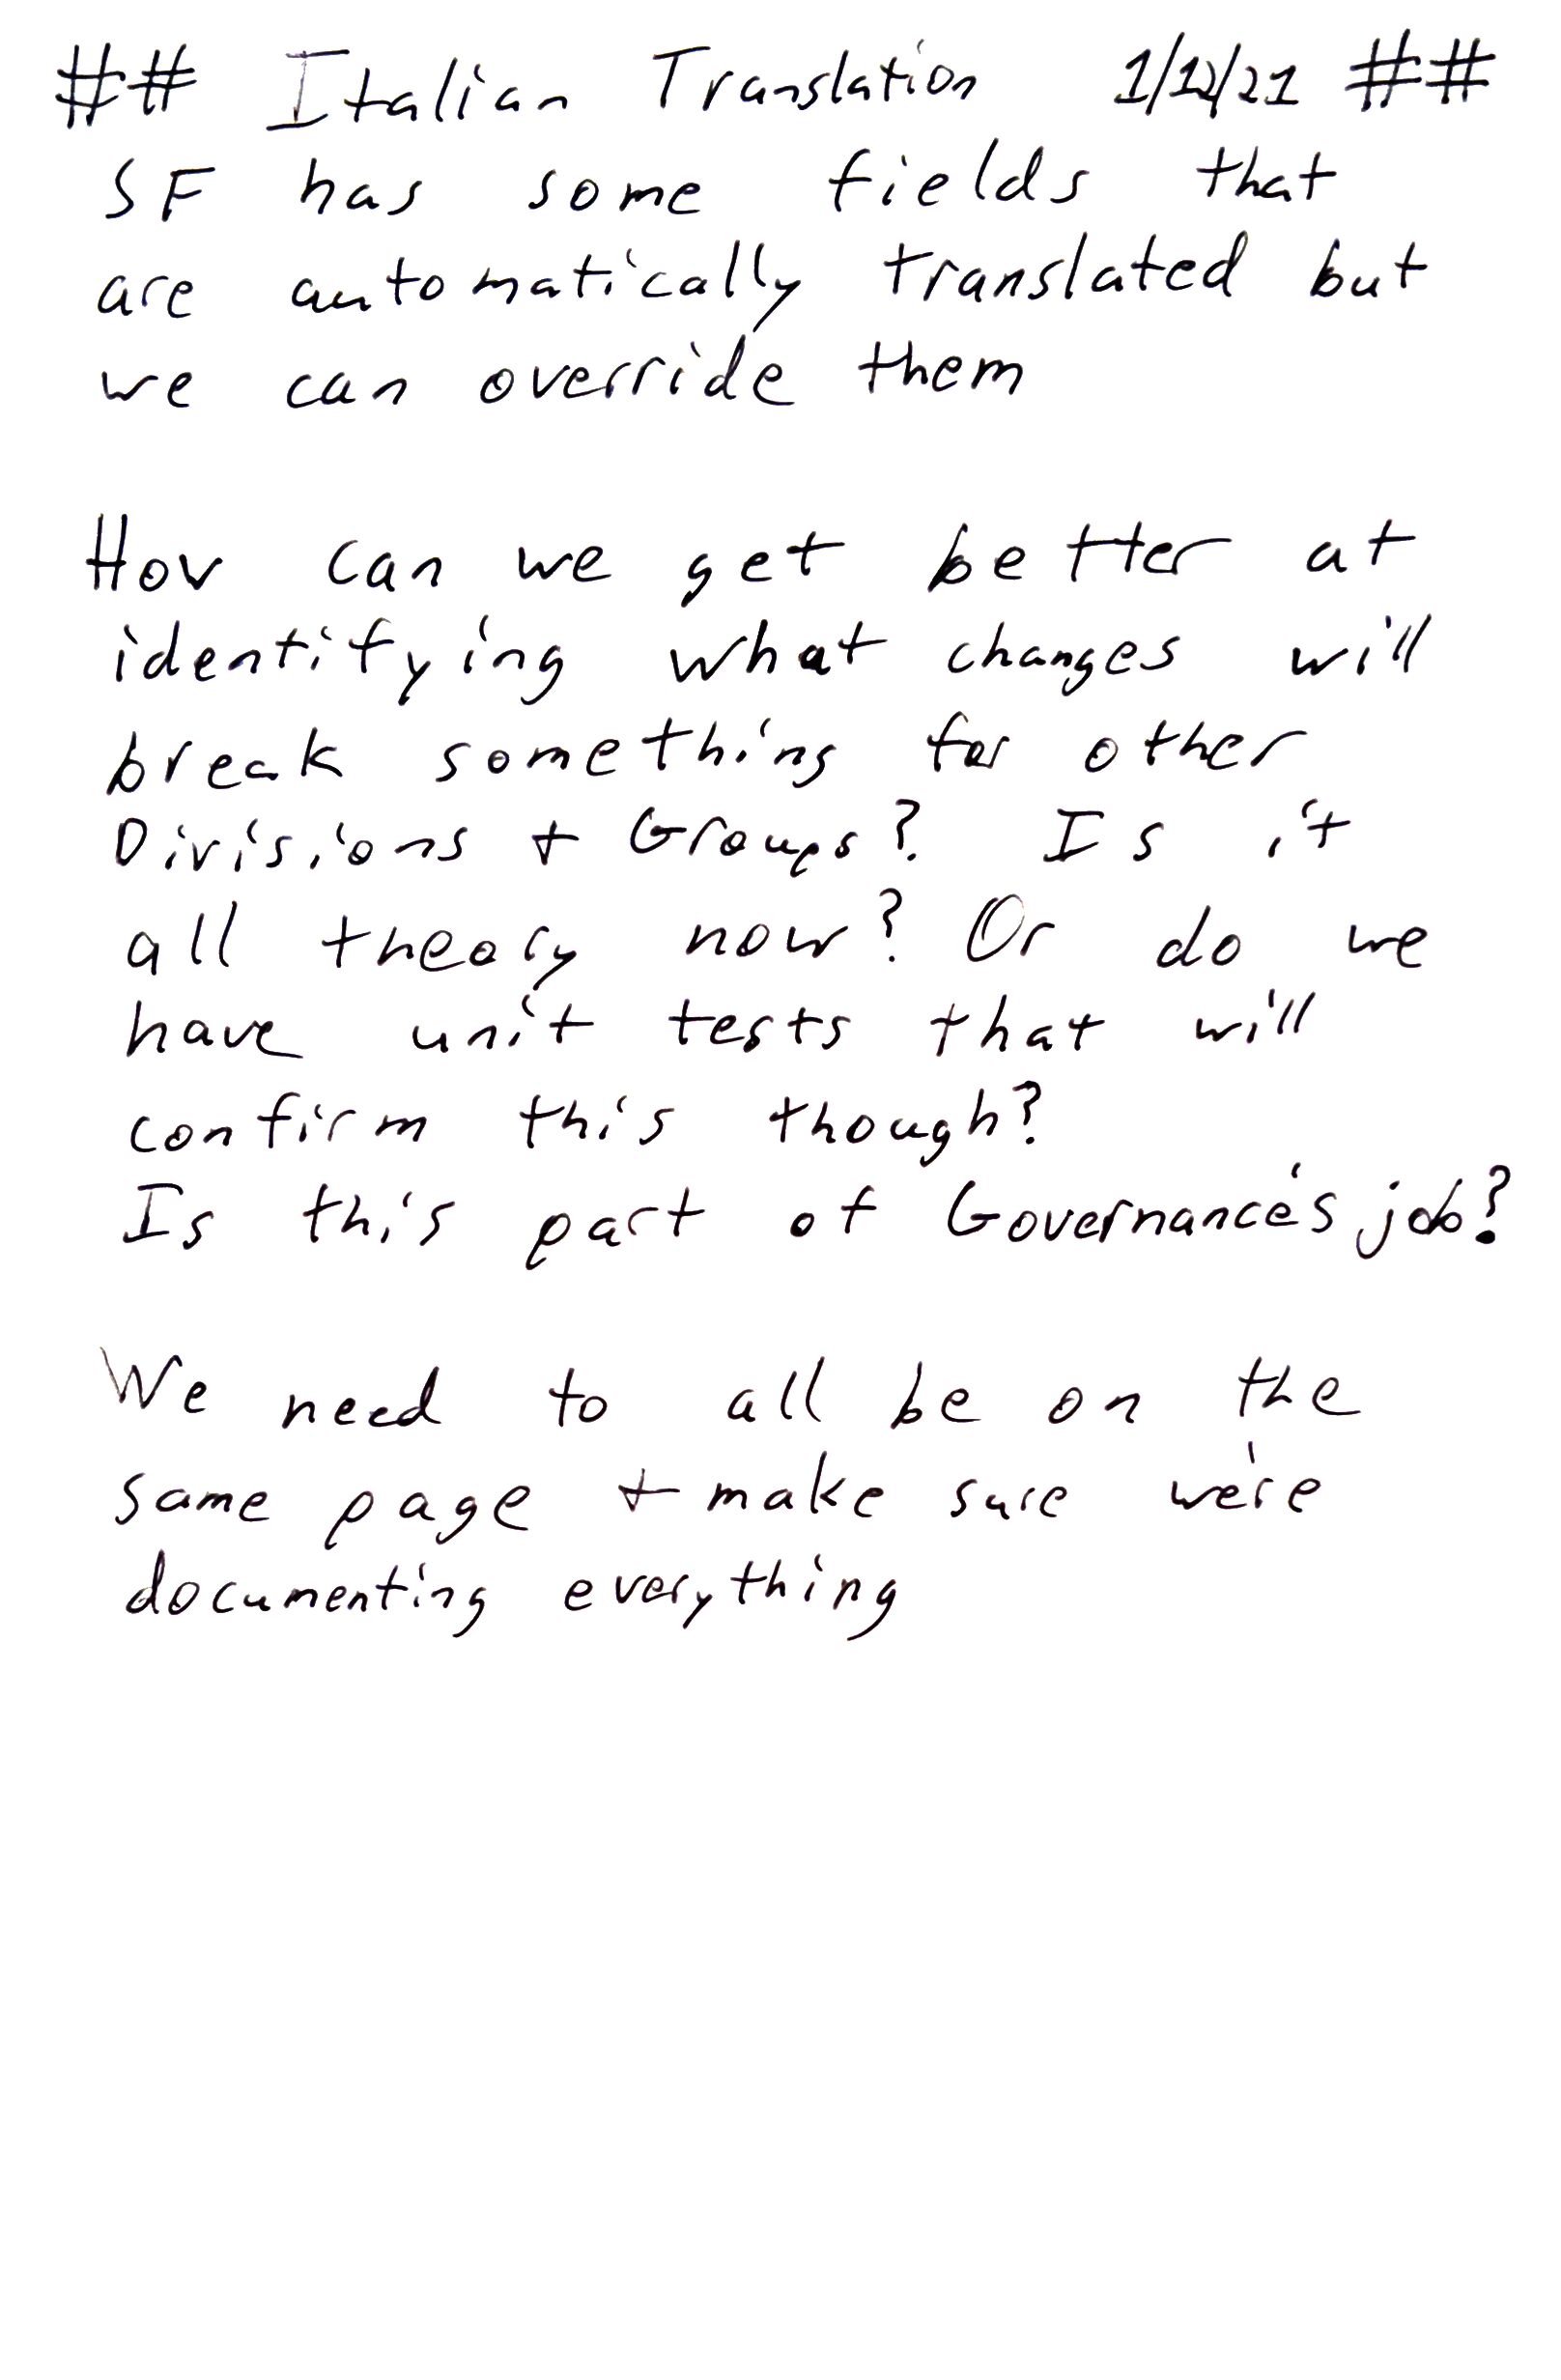 ## Italian Translation 1/12/21 ##
SF has some fields that
are automatically translated but
we can override them
How can we get better at
identifying what changes will
break something for other
Divisions + Groups? Is it
all theory now? Or do we
have unit tests that will
confirm this though?
Is this part of Governance's job?
We need to all be on the
same page + make sure we're
documenting everything